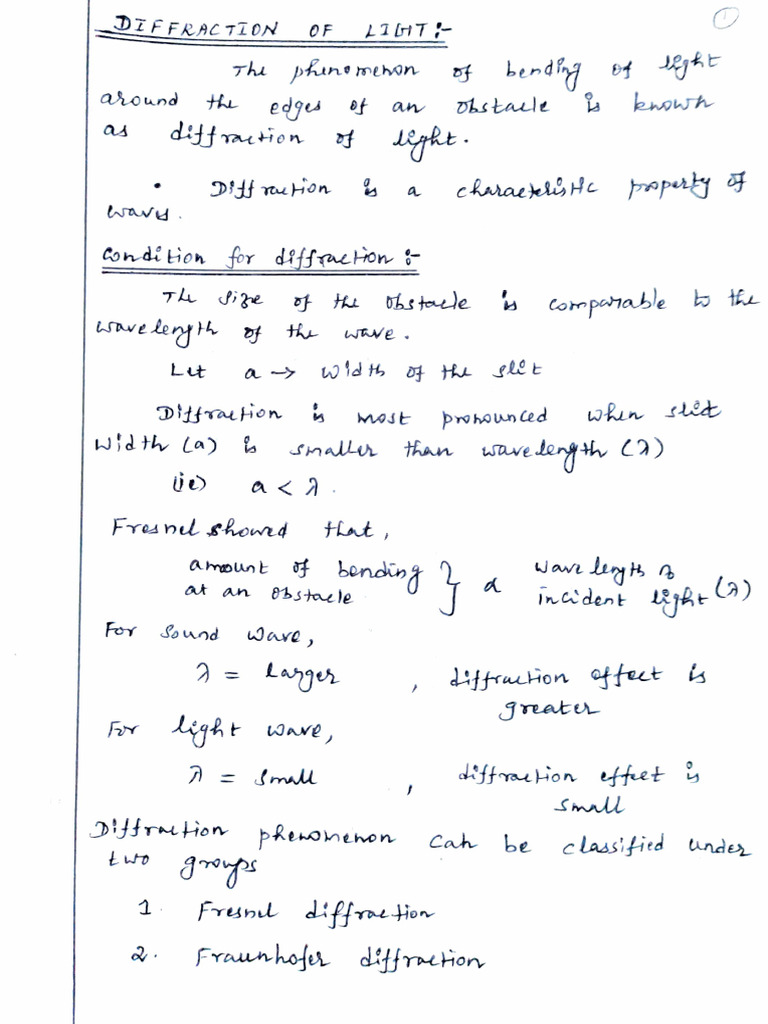 1
DIFFRACTION OF LIGHT:-
The phenomenon of bending of light
around the edges of an obstacle is known
as diffraction of light.
• Diffraction is a characteristic property of
waves.
Condition for diffraction :-
The size of the obstacle is comparable to the
wavelength of the wave.
Let a → width of the slit
Diffraction is most pronounced when slit
width (a) is smaller than wavelength (λ)
(ie) a < λ.
Fresnel showed that,
amount of bending } α wave length of
at an obstacle incident light (λ)
For sound wave,
λ = Larger , diffraction effect is
greater
For light wave,
λ = small , diffraction effect is
small
Diffraction phenomenon can be classified under
two groups
1. Fresnel diffraction
2. Fraunhofer diffraction